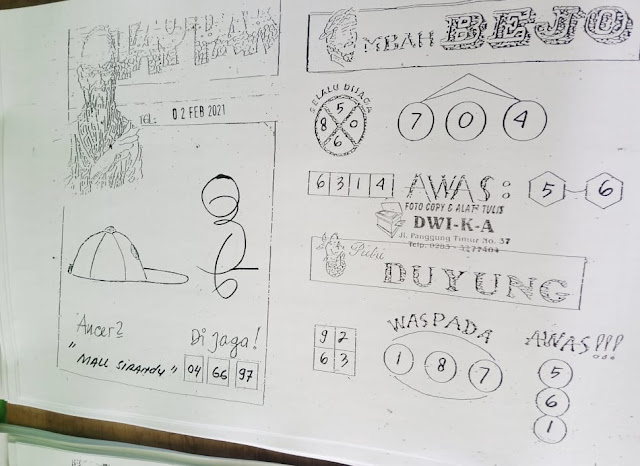 TGL: 02 FEB 2021
Ancer2
"MALL SIRANDU"
Di jaga!
04 66 97
MBAH BEJO
SELALU DIJAGA
5
8 0
6
7 0 4
6 3 1 4
AWAS: 5 - 6
FOTO COPY & ALAT TULIS
DWI-K-A
Jl. Panggung Timur No. 37
Telp.
Putri
DUYUNG
9 2
6 3
WASPADA
1 8 7
AWAS!!!
5
6
1